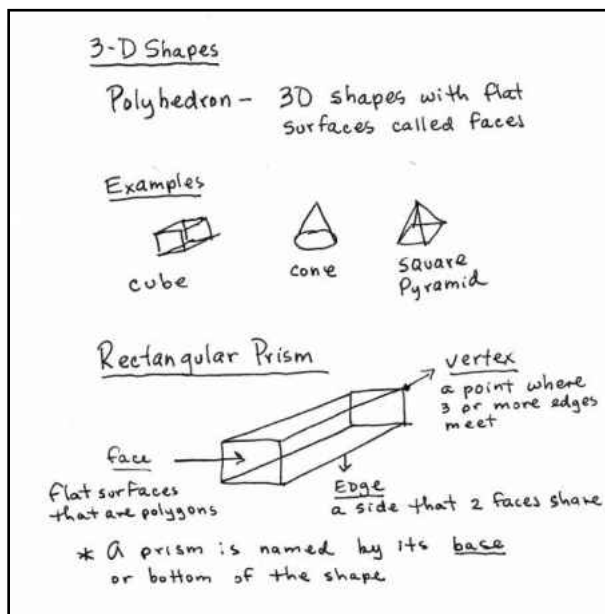 3-D Shapes
Polyhedron - 3D shapes with flat
surfaces called faces
Examples
cube
cone
square
Pyramid
Rectangular Prism
vertex
a point where
3 or more edges
meet
face
flat surfaces
that are polygons
Edge
a side that 2 faces share
* A prism is named by its base
or bottom of the shape